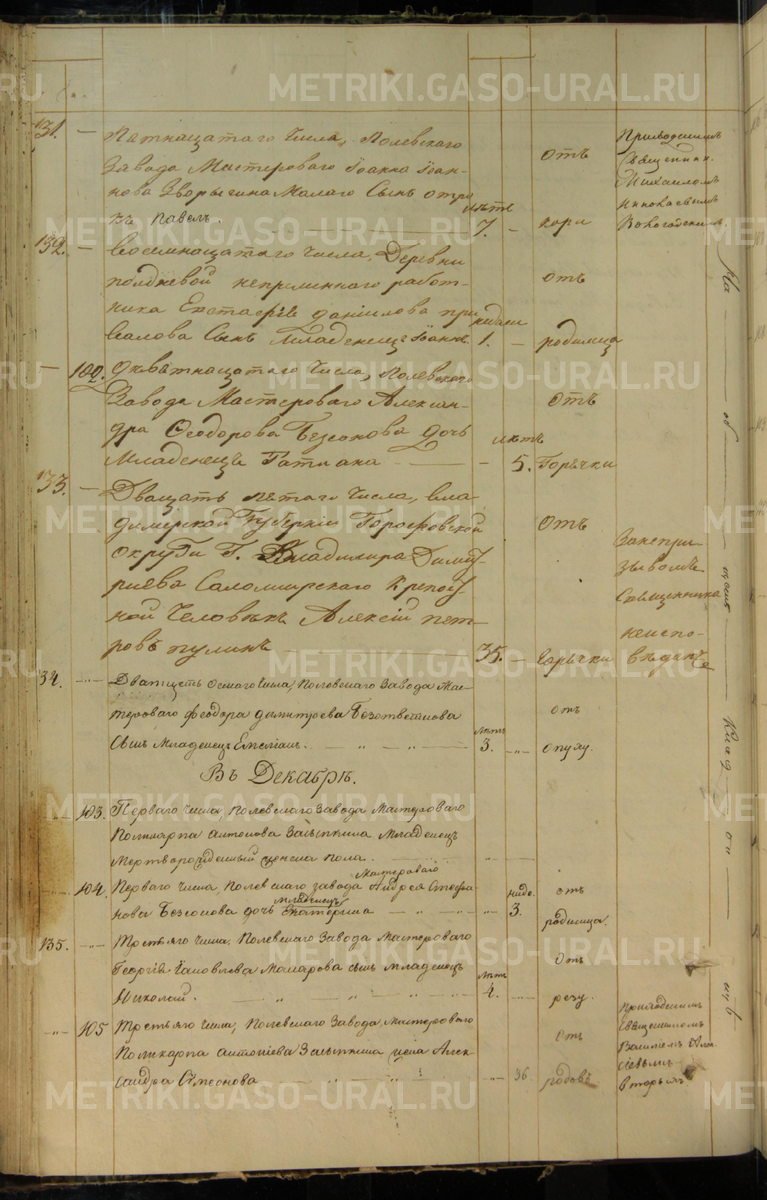 131. — Пятнацатаго числа, Полевскаго
завода Мастероваго Iоанна Iоан-
нова Зворыгина Малаго сынъ отро
къ Павелъ. — лѣтъ 7. — отъ кори
Приходскимъ
Священник.
Михаиломъ
132. — Восемнацатаго числа, Деревни
полдневой непременнаго работ-
ника Евстафiя данiилова при
валова сынъ Младенецъ Iоаннъ. недели 1. — отъ родимца
— 102. Девятнацатаго числа, Полевскаго
Завода Мастероваго Алексан-
дра Ѳеодорова Безсонова дочь
Младенецъ Татiана — лѣтъ 5. отъ Горячки
133. — Дватцать пятаго числа, Вла-
димерской Губернiи Гороховской
округи Г. Владимира Димит-
рiева Саломирскаго крепост-
ной Человѣкъ Алексiй пет-
ровъ пулинъ — 35. — отъ Горячки
священника
неиспо-
вѣданъ
34. — Дватцать осмаго числа, Полевскаго Завода Мас-
тероваго Феодора димитрiева Безответнова
сынъ Младенец Емелiан. — лѣтъ 3. — отъ опуху.
Въ Декабрѣ.
103. Перваго числа, Полевскаго Завода Мастероваго
Поликарпа антонова Засыпкина Младенецъ
Мертворожденный женска пола.
104. Перваго числа, Полевскаго завода Мастероваго Андрея Стефа-
нова Безсонова дочь младенецъ Екатерина — неде. 3. отъ родимца.
135. — Третьяго числа, Полевскаго Завода Мастероваго
Георгiя Iаковлева Макарова сынъ младенецъ
Николай. — лѣт 4. — отъ резу.
105 Третьяго числа, Полевскаго Завода, Мастероваго
Поликарпа антонiева Засыпкина жена Алек-
сандра Симеонова — 36 отъ родовъ
Приходскимъ
Священникомъ
Василiемъ
вторымъ
METRIKI.GASO-URAL.RU